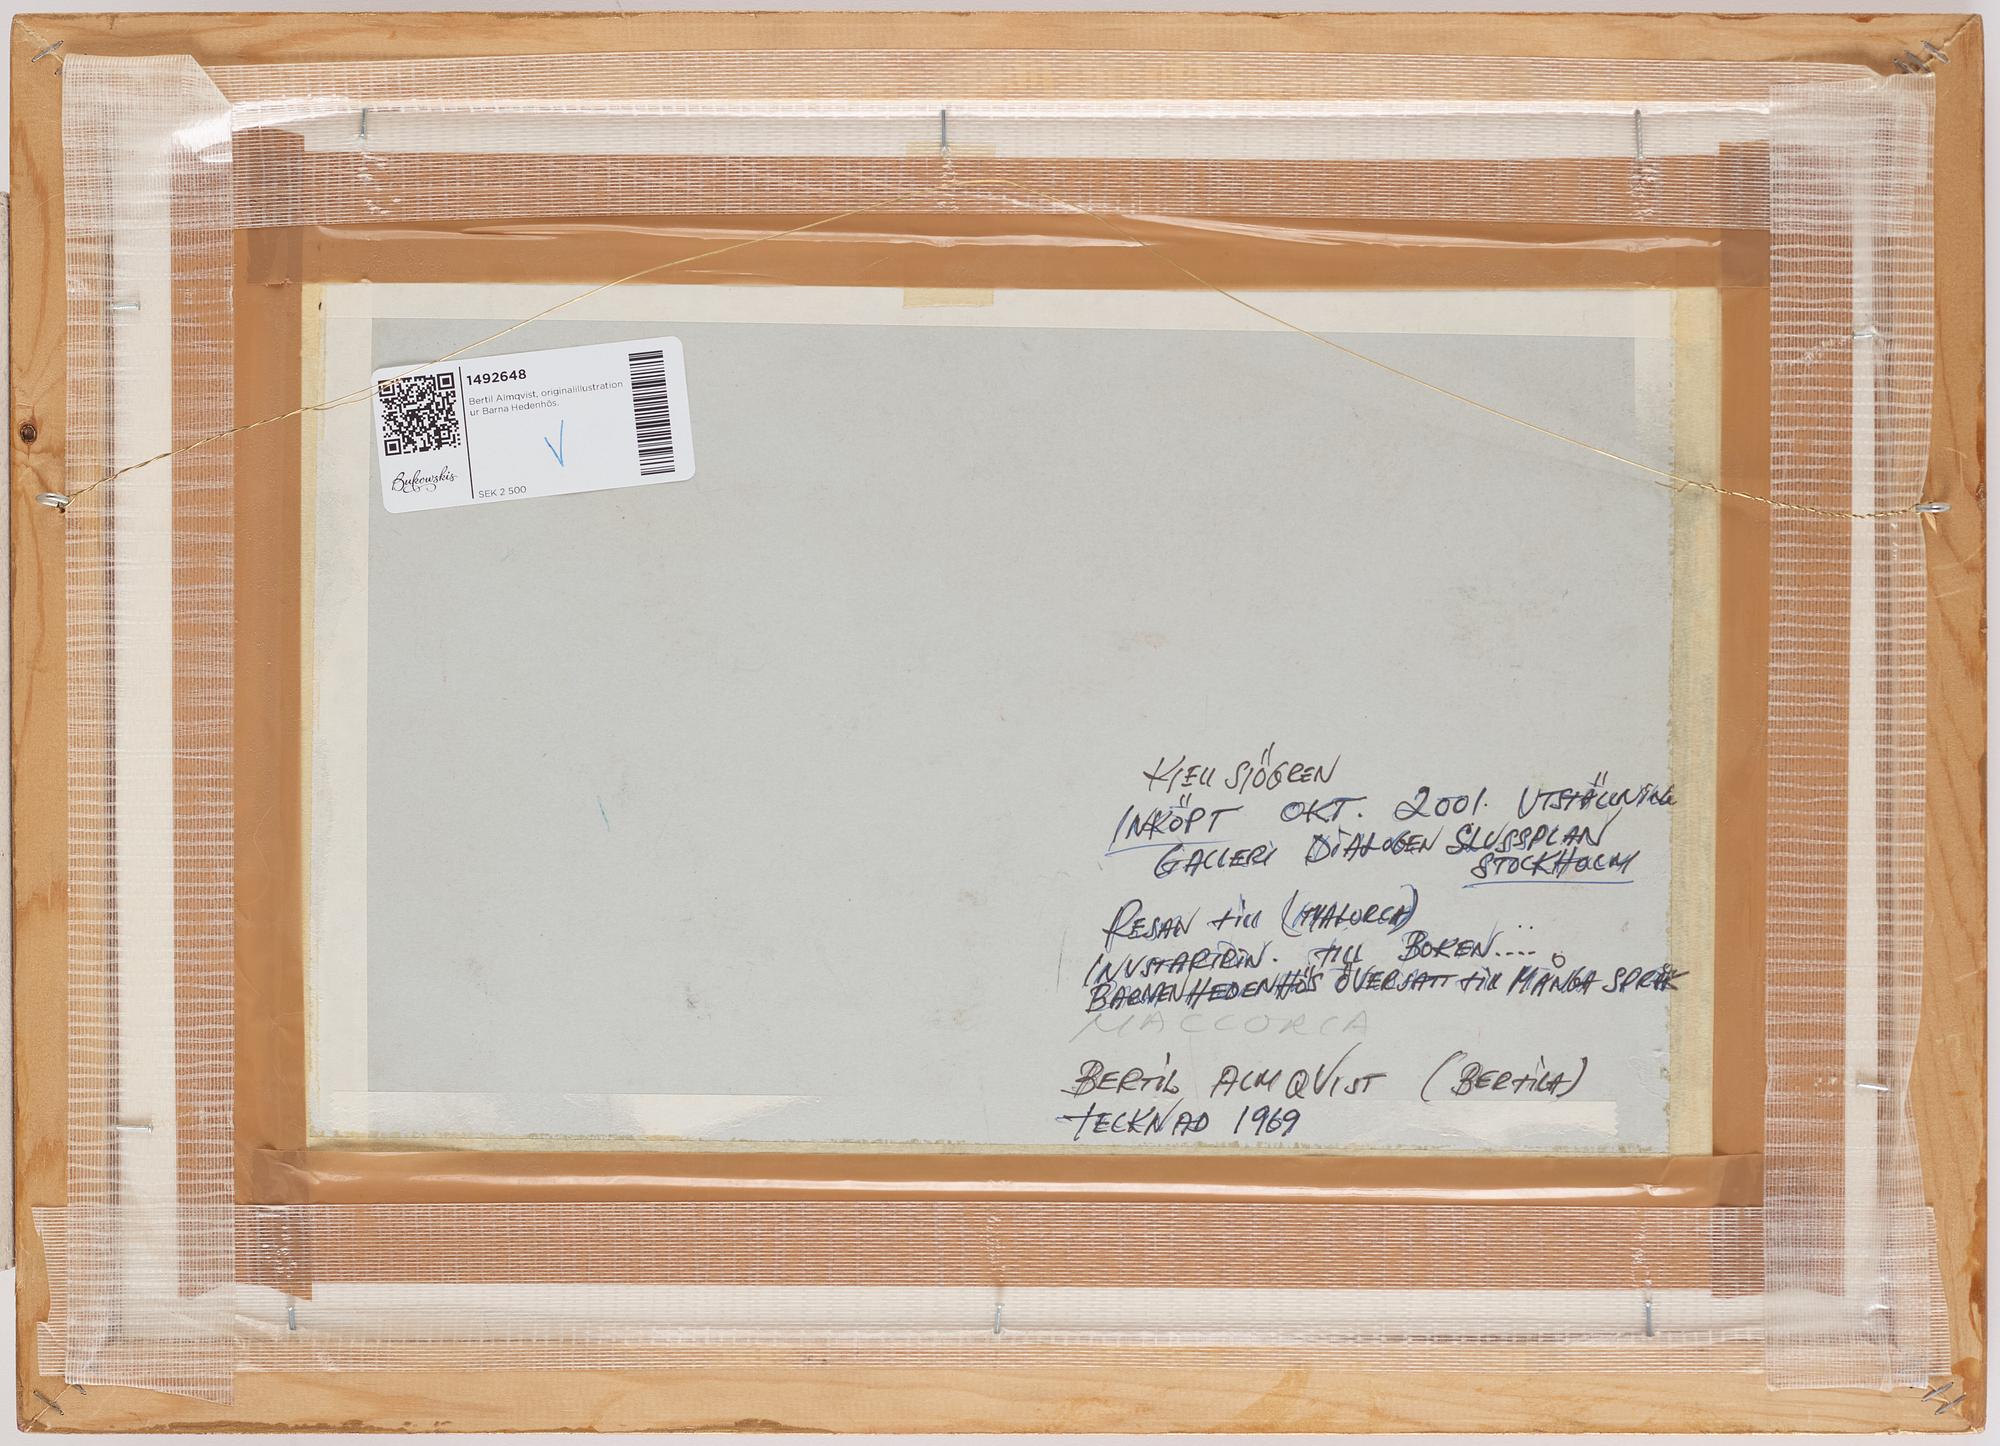 1492648
Bertil Almqvist, originalillustration
ur Barna Hedenhös.
V
Bukowskis
SEK 2 500
KJELL SJÖGREN
INKÖPT OKT. 2001. UTSTÄLLNING
GALLERI DIALOGEN SLUSSPLAN
STOCKHOLM
RESAN till (MALLORCA)
till BOKEN....
BARNEN HEDENHÖS ÖVERSATT till MÅNGA SPRÅK
MALLORCA
BERTIL ALMQVIST (BERTILA)
TECKNAD 1969